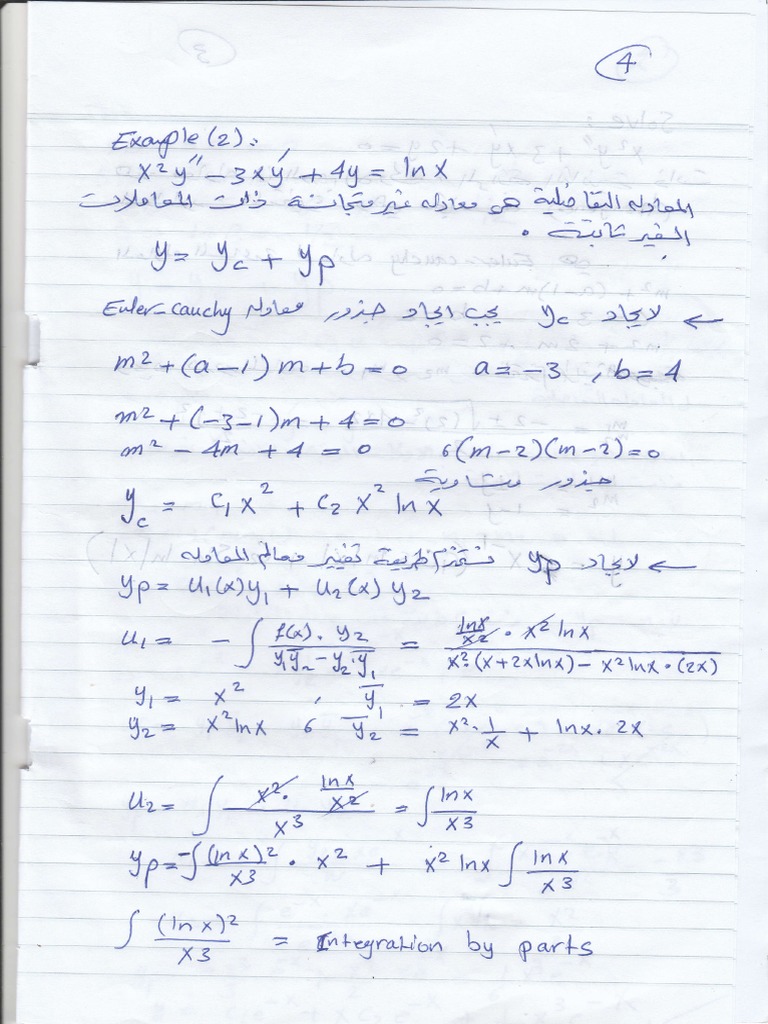 4
Example (2):
x²y'' - 3xy' + 4y = ln x
المعادله التفاضلية هو معادله غير متجانسة ذات المعاملات
الغير ثابتة .
y = y_c + y_p
← لايجاد y_c يجب ايجاد جذور معادله Euler-cauchy
m² + (a-1)m + b = 0 a = -3 , b = 4
m² + (-3-1)m + 4 = 0
m² - 4m + 4 = 0 6 (m-2)(m-2) = 0
جذور متساوية
y_c = c₁x² + c₂x² ln x
← لايجاد y_p نستخدم طريقة تغيير معالم المعادله
y_p = u₁(x)y₁ + u₂(x)y₂
u₁ = -∫ f(x)·y₂ / (y₁y₂' - y₂·y₁') = (ln x / x² · x² ln x) / (x²·(x+2x ln x) - x² ln x·(2x))
y₁ = x² , y₁' = 2x
y₂ = x² ln x 6 y₂' = x²·1/x + ln x·2x
u₂ = ∫ (x²· ln x / x²) / x³ = ∫ ln x / x3
y_p = -∫ (ln x)² / x3 · x² + x² ln x ∫ ln x / x3
∫ (ln x)² / x3 = Integration by parts